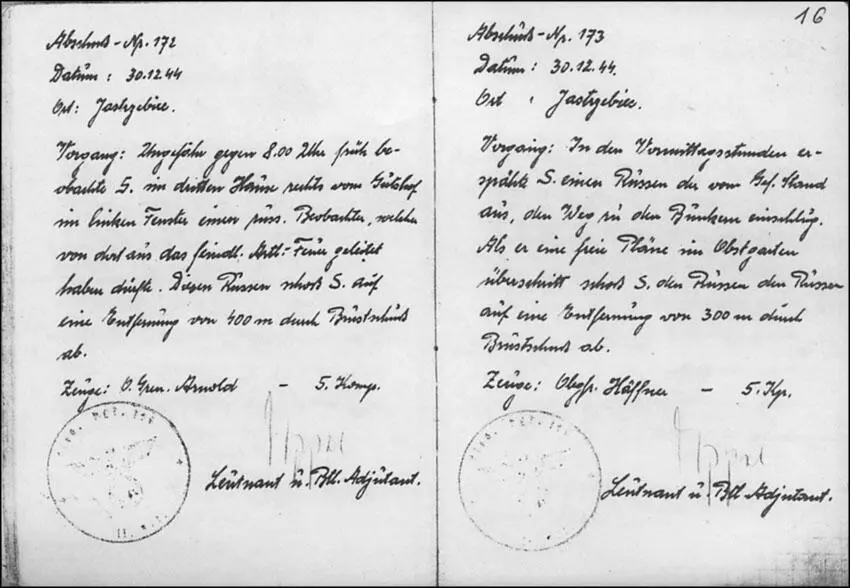 Abschuß-Np. 172
Datum: 30.12.44
Ort: Jastrzebiec.
Vorgang: Ungefähr gegen 8.00 Uhr früh be-
obachte S. im dritten Hause rechts vom Gutshof
im linken Fenster einen russ. Beobachter, welcher
von dort aus das feindl. Artl.-Feuer geleitet
haben dürfte. Diesen Russen schoß S. auf
eine Entfernung von 400 m durch Brustschuß
ab.
Zeuge: O. Gren. Arnold – 5. Komp.
Leutnant u. Btl. Adjutant.
16
Abschuß-Np. 173
Datum: 30.12.44.
Ort: Jastrzebiec.
Vorgang: In den Vormittagsstunden er-
spähte S. einen Russen der vom Gef. Stand
aus, den Weg zu den Bunkern einschlug.
Als er eine freie Pläne im Obstgarten
überschritt schoß S. den Russen den Russen
auf eine Entfernung von 300 m durch
Brustschuß ab.
Zeuge: Obgfr. Häffner – 5. Kp.
Leutnant u. Btl. Adjutant.